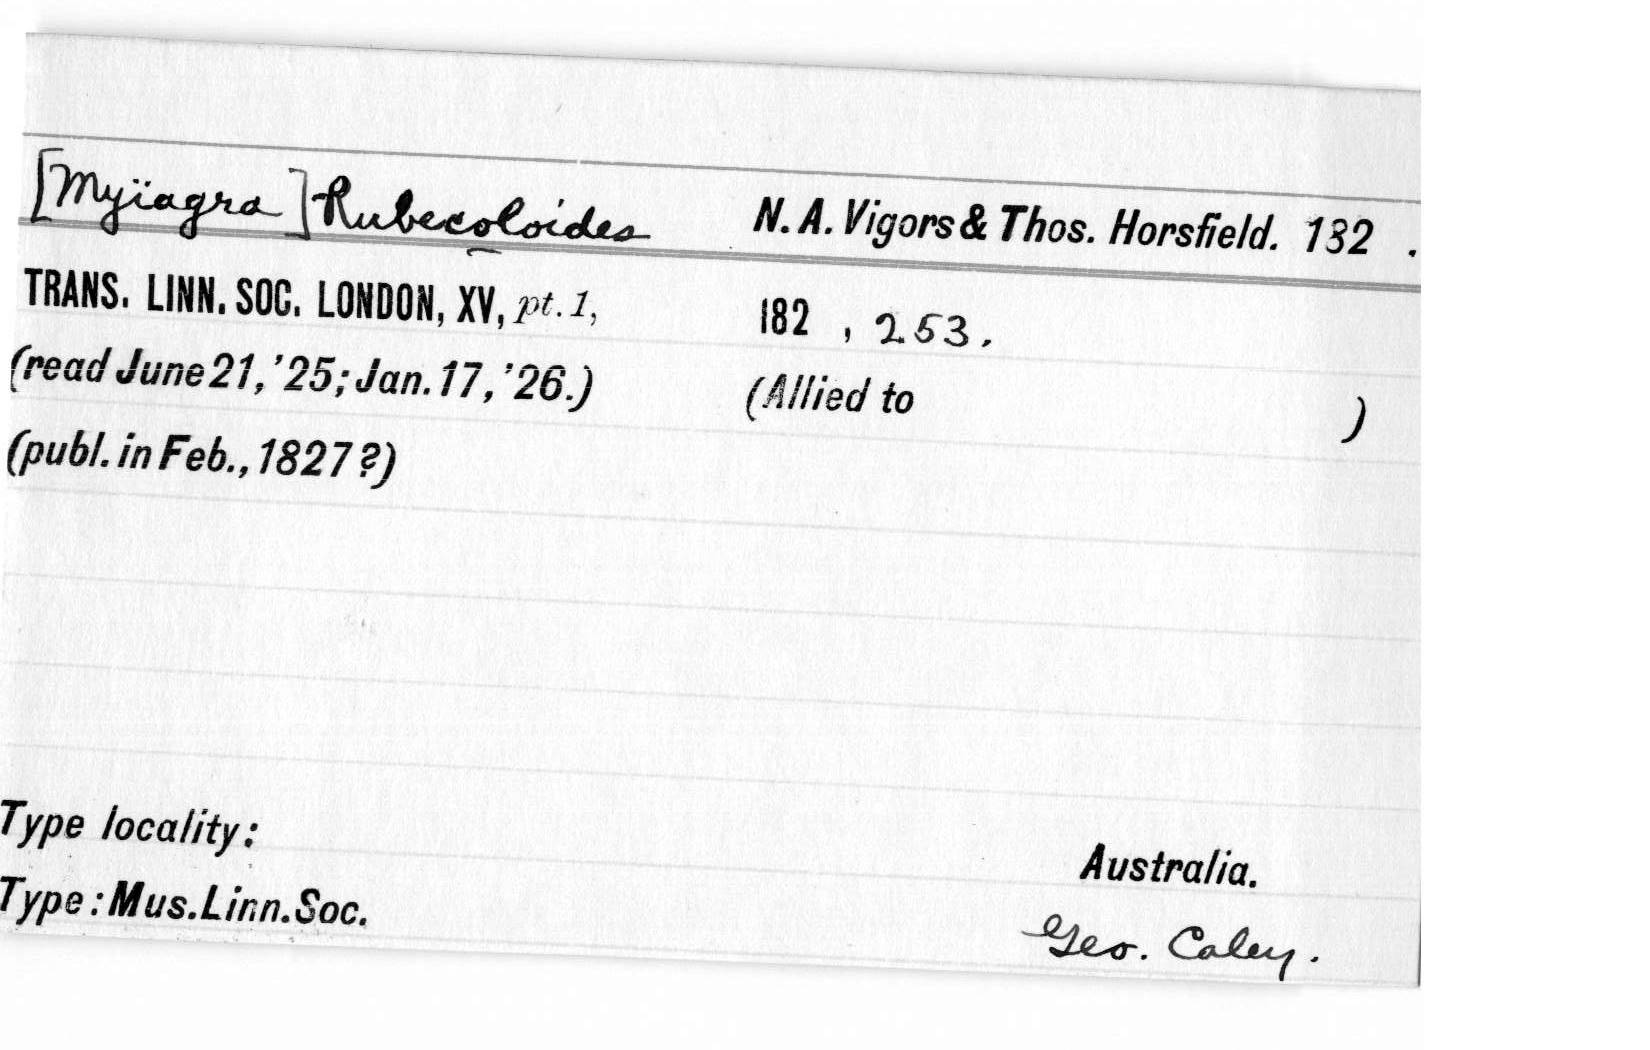 [Myïagra] Rubecoloides N. A. Vigors & Thos. Horsfield. 182 .
TRANS. LINN. SOC. LONDON, XV, pt. 1, 182 , 253.
(read June 21, '25; Jan. 17, '26.) (Allied to )
(publ. in Feb., 1827 ?)
Type locality: Australia.
Type: Mus. Linn. Soc. Geo. Caley.